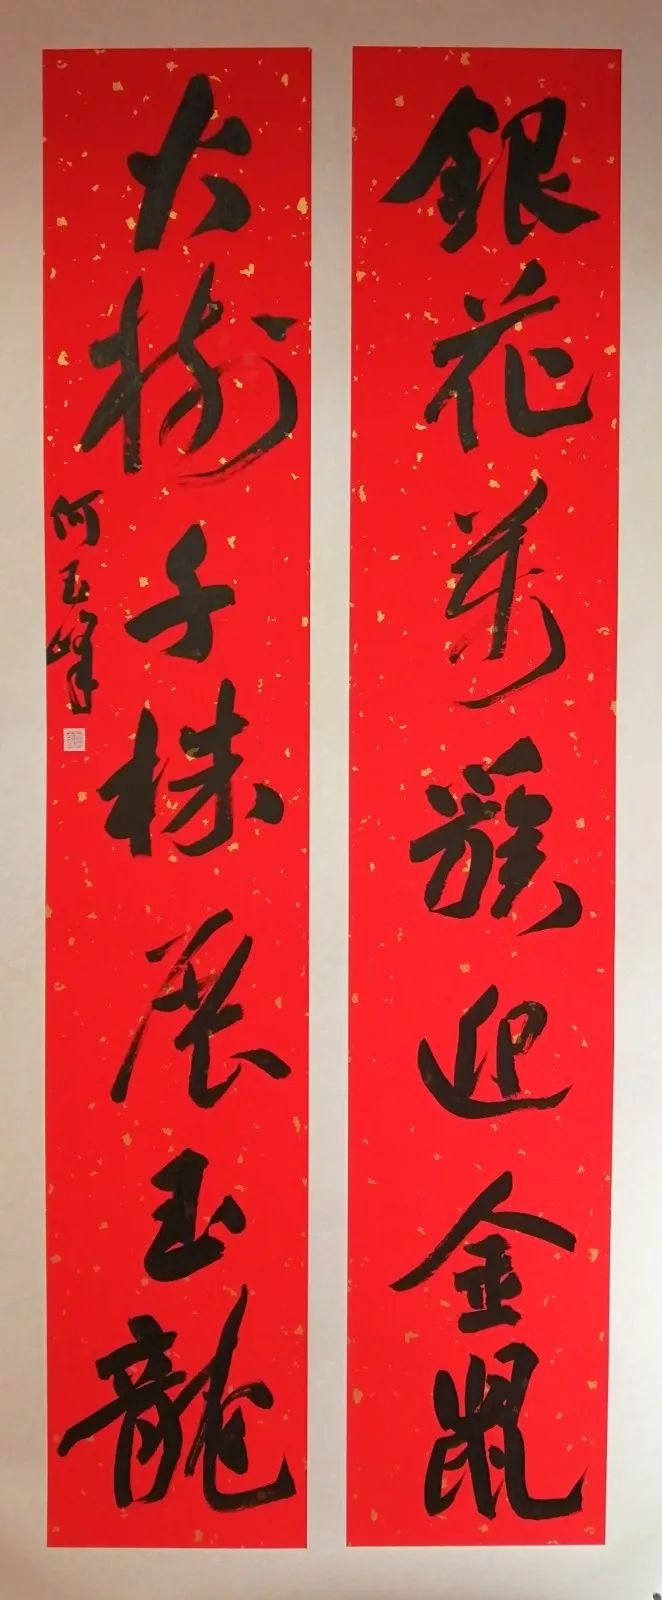 銀花萬簇迎金鼠
火樹千株展玉龍
何玉峰